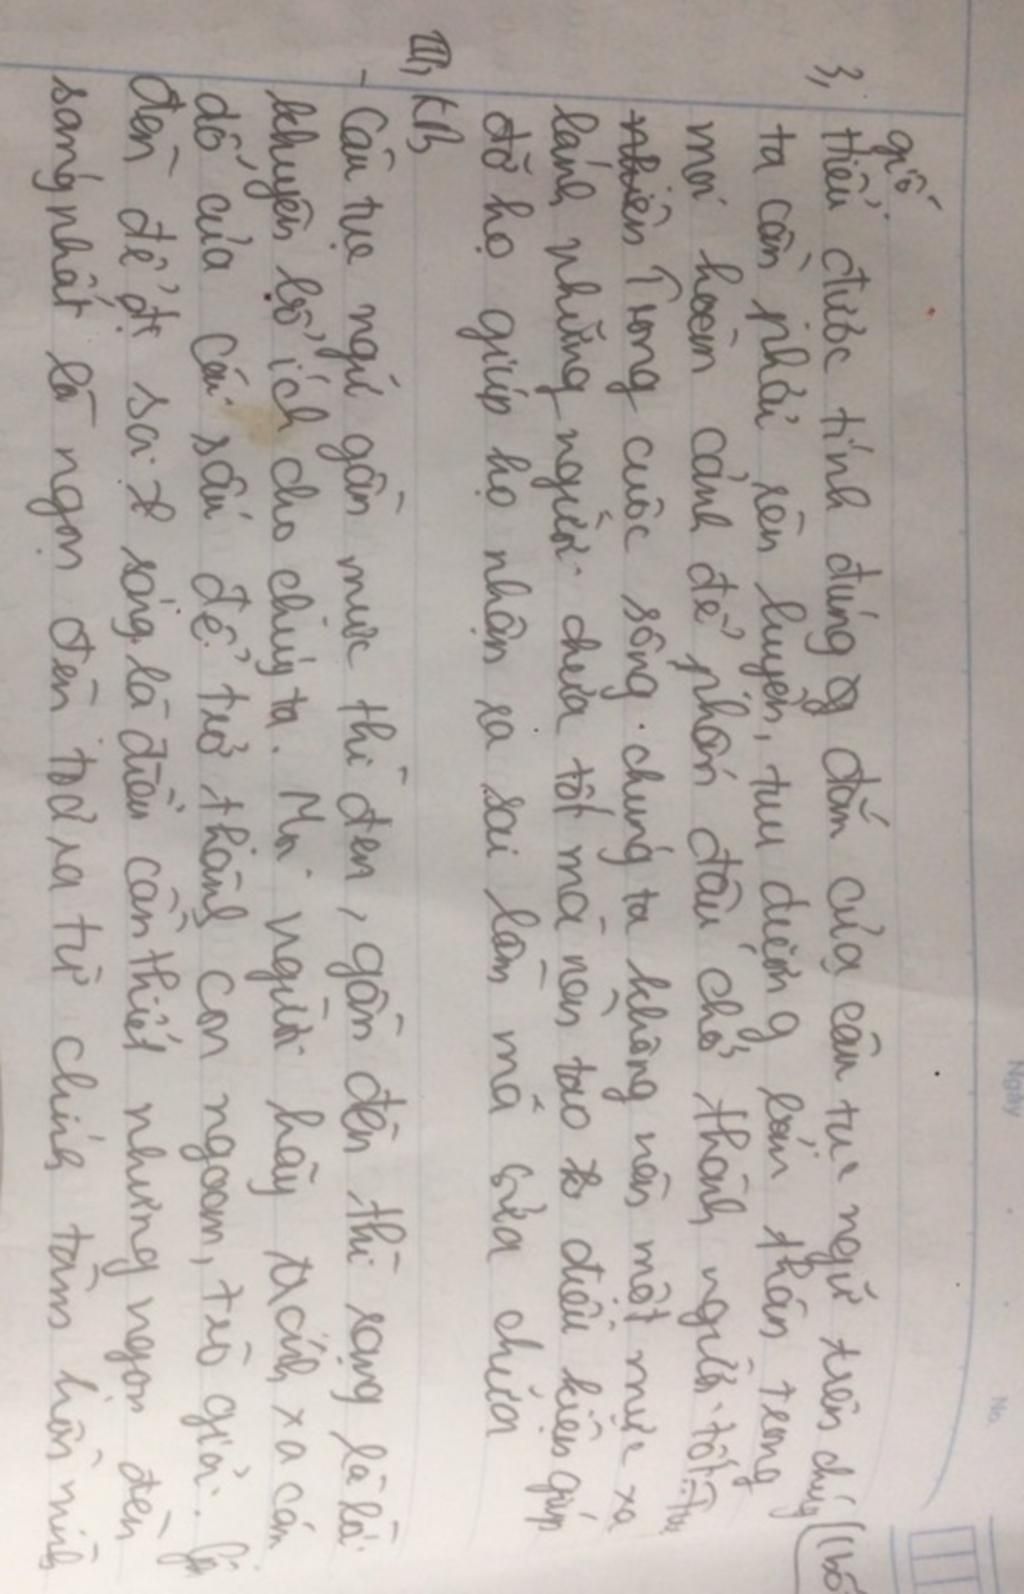 giố
3, Hiểu được tính đúng đắn của câu tục ngữ trên chúng
ta cần phải rèn luyện, tu dưỡng bản thân trong
mọi hoàn cảnh để phấn đấu chở thành người tốt. Tuy
nhiên Trong cuộc sống. chúng ta không nên một mực xa
lánh những người chưa tốt mà nên tạo điều kiện giúp
đỡ họ giúp họ nhận ra sai lầm mà sửa chửa
III, KB
- Câu tục ngữ gần mực thì đen, gần đèn thì sạng là lời
khuyên bổ ích cho chúng ta. Mọi người hãy tránh xa cám
dỗ của cái sấu để trở thành con ngoan, trò giỏi.
đèn để đt soi sáng là điều cần thiết nhưng ngọn đèn
sáng nhất là ngọn đèn toả ra từ chính tâm hồn mình
Ngày
No.